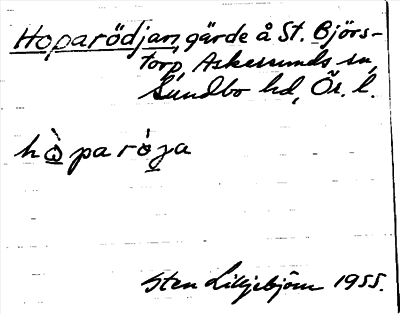 Hoparödjan, gärde å St. Björs-
torp, Askersunds sn,
Sundbo hd, Ör. l.
hò̲parò̲ja
Sten Lilljebjörn 1955.